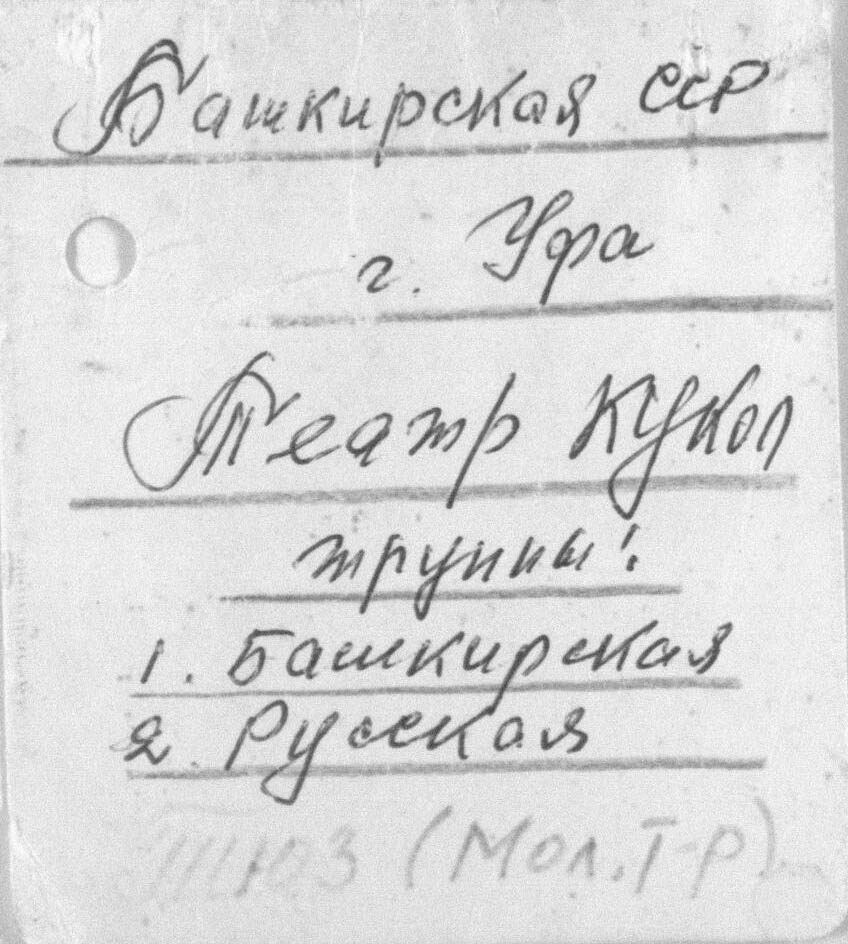 Башкирская ССР
г. Уфа
Театр Кукол
труппы:
1. Башкирская
2. Русская
ТЮЗ (Мол. Т-р)